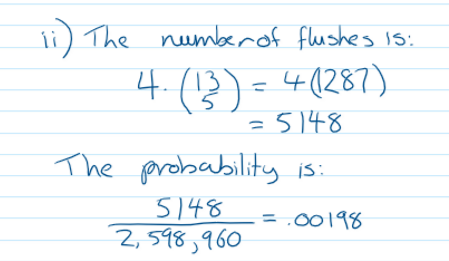 ii) The number of flushes is:
4. (13 5) = 4(1287)
= 5148
The probability is:
5148 / 2,598,960 = .00198